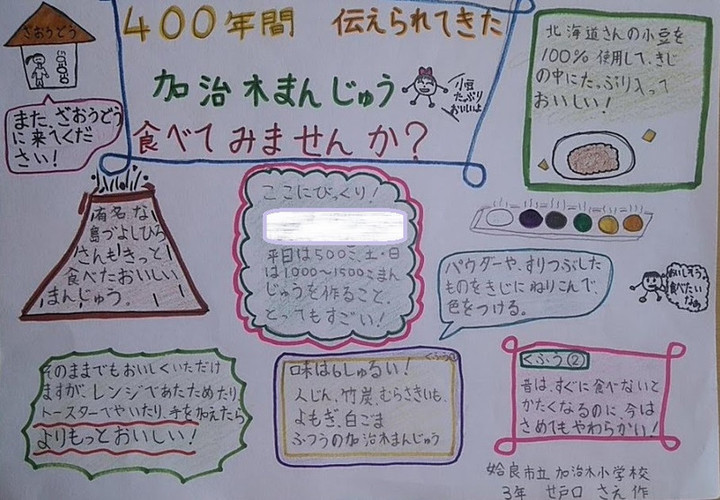 400年間 伝えられてきた
加治木まんじゅう
食べてみませんか?
小豆
たっぷり
おいしいよ
ざおうどう
また、ざおうどう
に来てくだ
さい!
北海道さんの小豆を
100%使用して、きじ
の中にたっぷり入って
おいしい!
有名な
島づよしひろ
さんも!きっと!
食べたおいしい
まんじゅう。
ここにびっくり!
平日は500こ、土・日
は1000〜1500こまん
じゅうを作ること、
とってもすごい!
パウダーや、すりつぶした
ものをきじにねりこんで、
色をつける。
おいしそう
食べたい
なあ
そのままでもおいしくいただけ
ますが、レンジであたためたり
トースターでやいたり、手を加えたら
よりもっとおいしい!
くふう①
味は6しゅるい!
人じん、竹炭、むらさきいも、
よもぎ、白ごま
ふつうの加治木まんじゅう
くふう②
昔は、すぐに食べないと
かたくなるのに、今は
さめてもやわらかい!
姶良市立 加治木小学校
3年 せ戸口 さえ 作